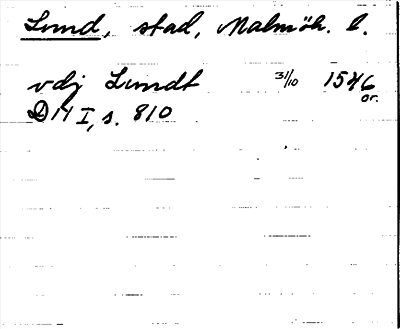 Lund, stad, Malmöh. l.
vdj Lundt 31/10 1546 or.
D 14 I, s. 810